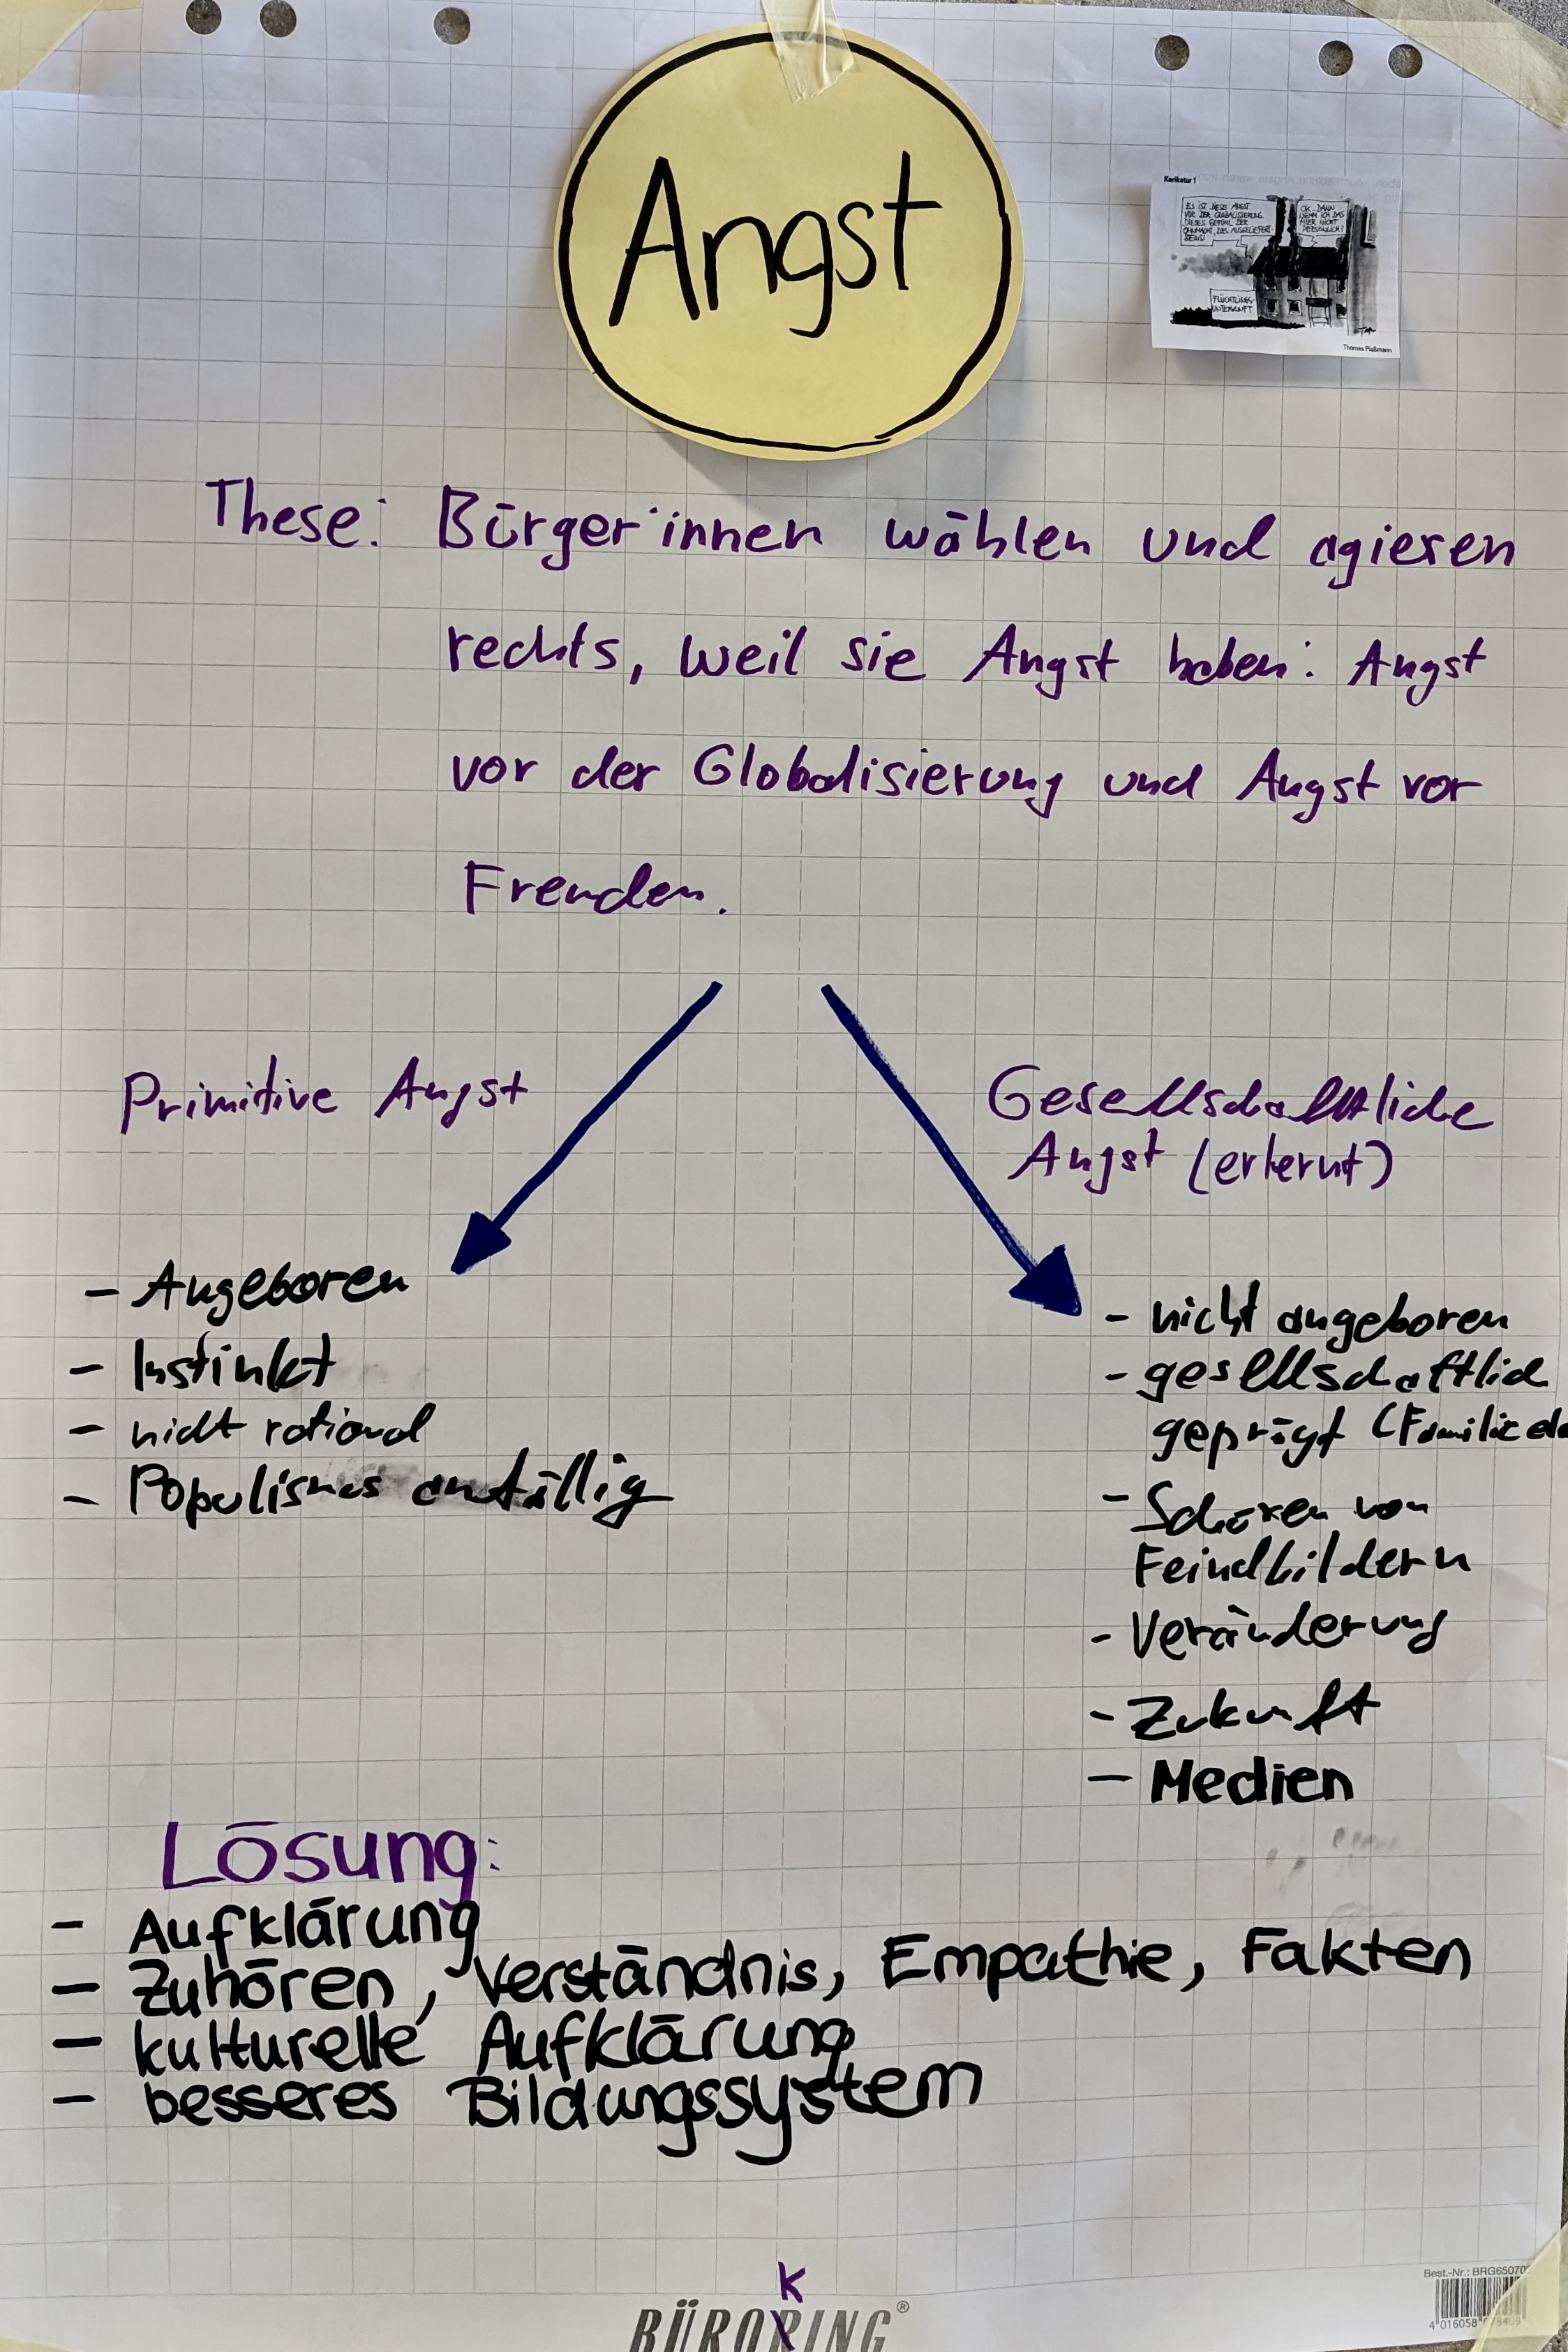 Angst
Karikatur 1
ES IST DIESE ANGST
VOR DER GLOBALISIERUNG.
DIESES GEFÜHL DER
OHNMACHT, DES AUSGELIEFERT-
SEINS!
OK. DANN
NEHM ICH DAS
HIER NICHT
PERSÖNLICH!
FLÜCHTLINGS-
UNTERKUNFT
Thomas Plaßmann
These: Bürger*innen wählen und agieren
rechts, weil sie Angst haben: Angst
vor der Globalisierung und Angst vor
Fremden.
Primitive Angst
Gesellschaftliche
Angst (erlernt)
- Angeboren
- Instinkt
- nicht rational
- Populismus anfällig
- nicht angeboren
- gesellschaftlich
geprägt (Familie
- Schüren von
Feindbildern
- Veränderung
- Zukunft
- Medien
Lösung:
- Aufklärung
- Zuhören, Verständnis, Empathie, Fakten
- kulturelle Aufklärung
- besseres Bildungssystem
K
BÜRORING®
Best.-Nr.: BRG65070